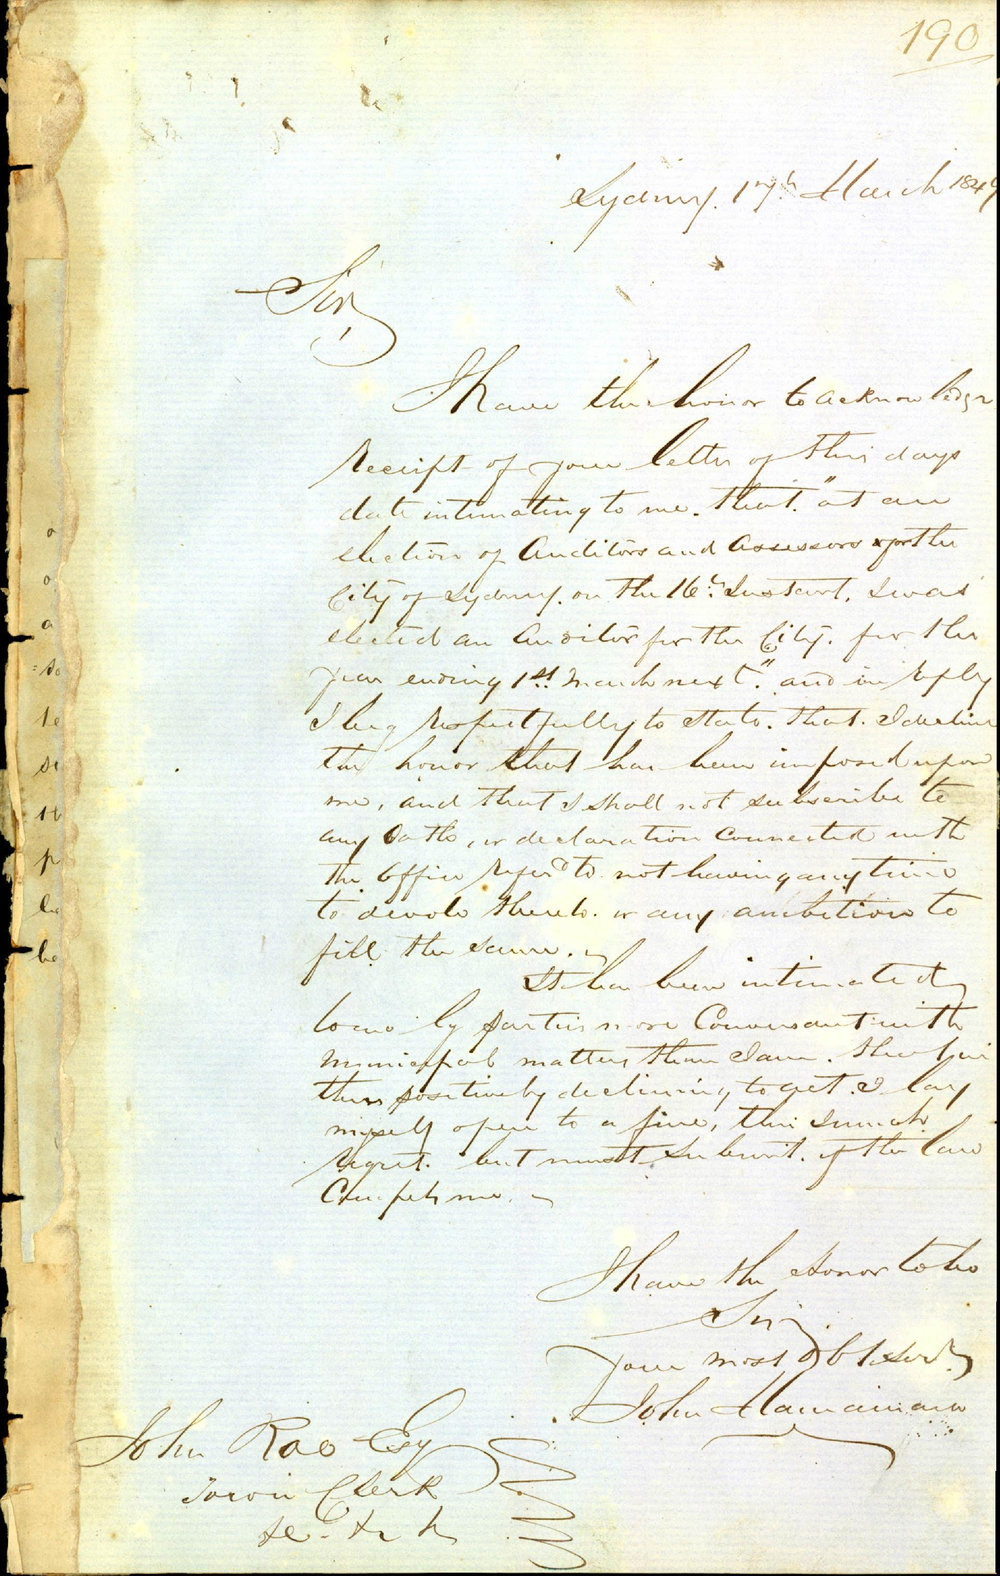 190
Sydney. 17th March 1849
Sir,
I have the honor to acknowledge
Receipt of your letter of this days
date intimating to me. that. "at an
election of Auditors and Assessors for the
City of Sydney. on the 16th Instant. I was
elected an Auditor for the City. for the
year ending 1st March next." and in reply
I beg respectfully to state. that. I decline
the honor that has been imposed upon
me, and that I shall not subscribe to
any Oath, or declaration connected with
the office referd to not having any time
to devote thereto. or any ambition to
fill the same.
It has been intimated
to me by parties more Conversant with
Municipal matters than I am. that in
thus positively declining to act. I lay
myself open to a fine, this I much
regret. but must submit. if the law
Compels me.
I have the Honor to be
Sir,
Your most Obt Servt
John
John Rae Esq
Town Clerk
&c. &c &c
a
to
se
p
be